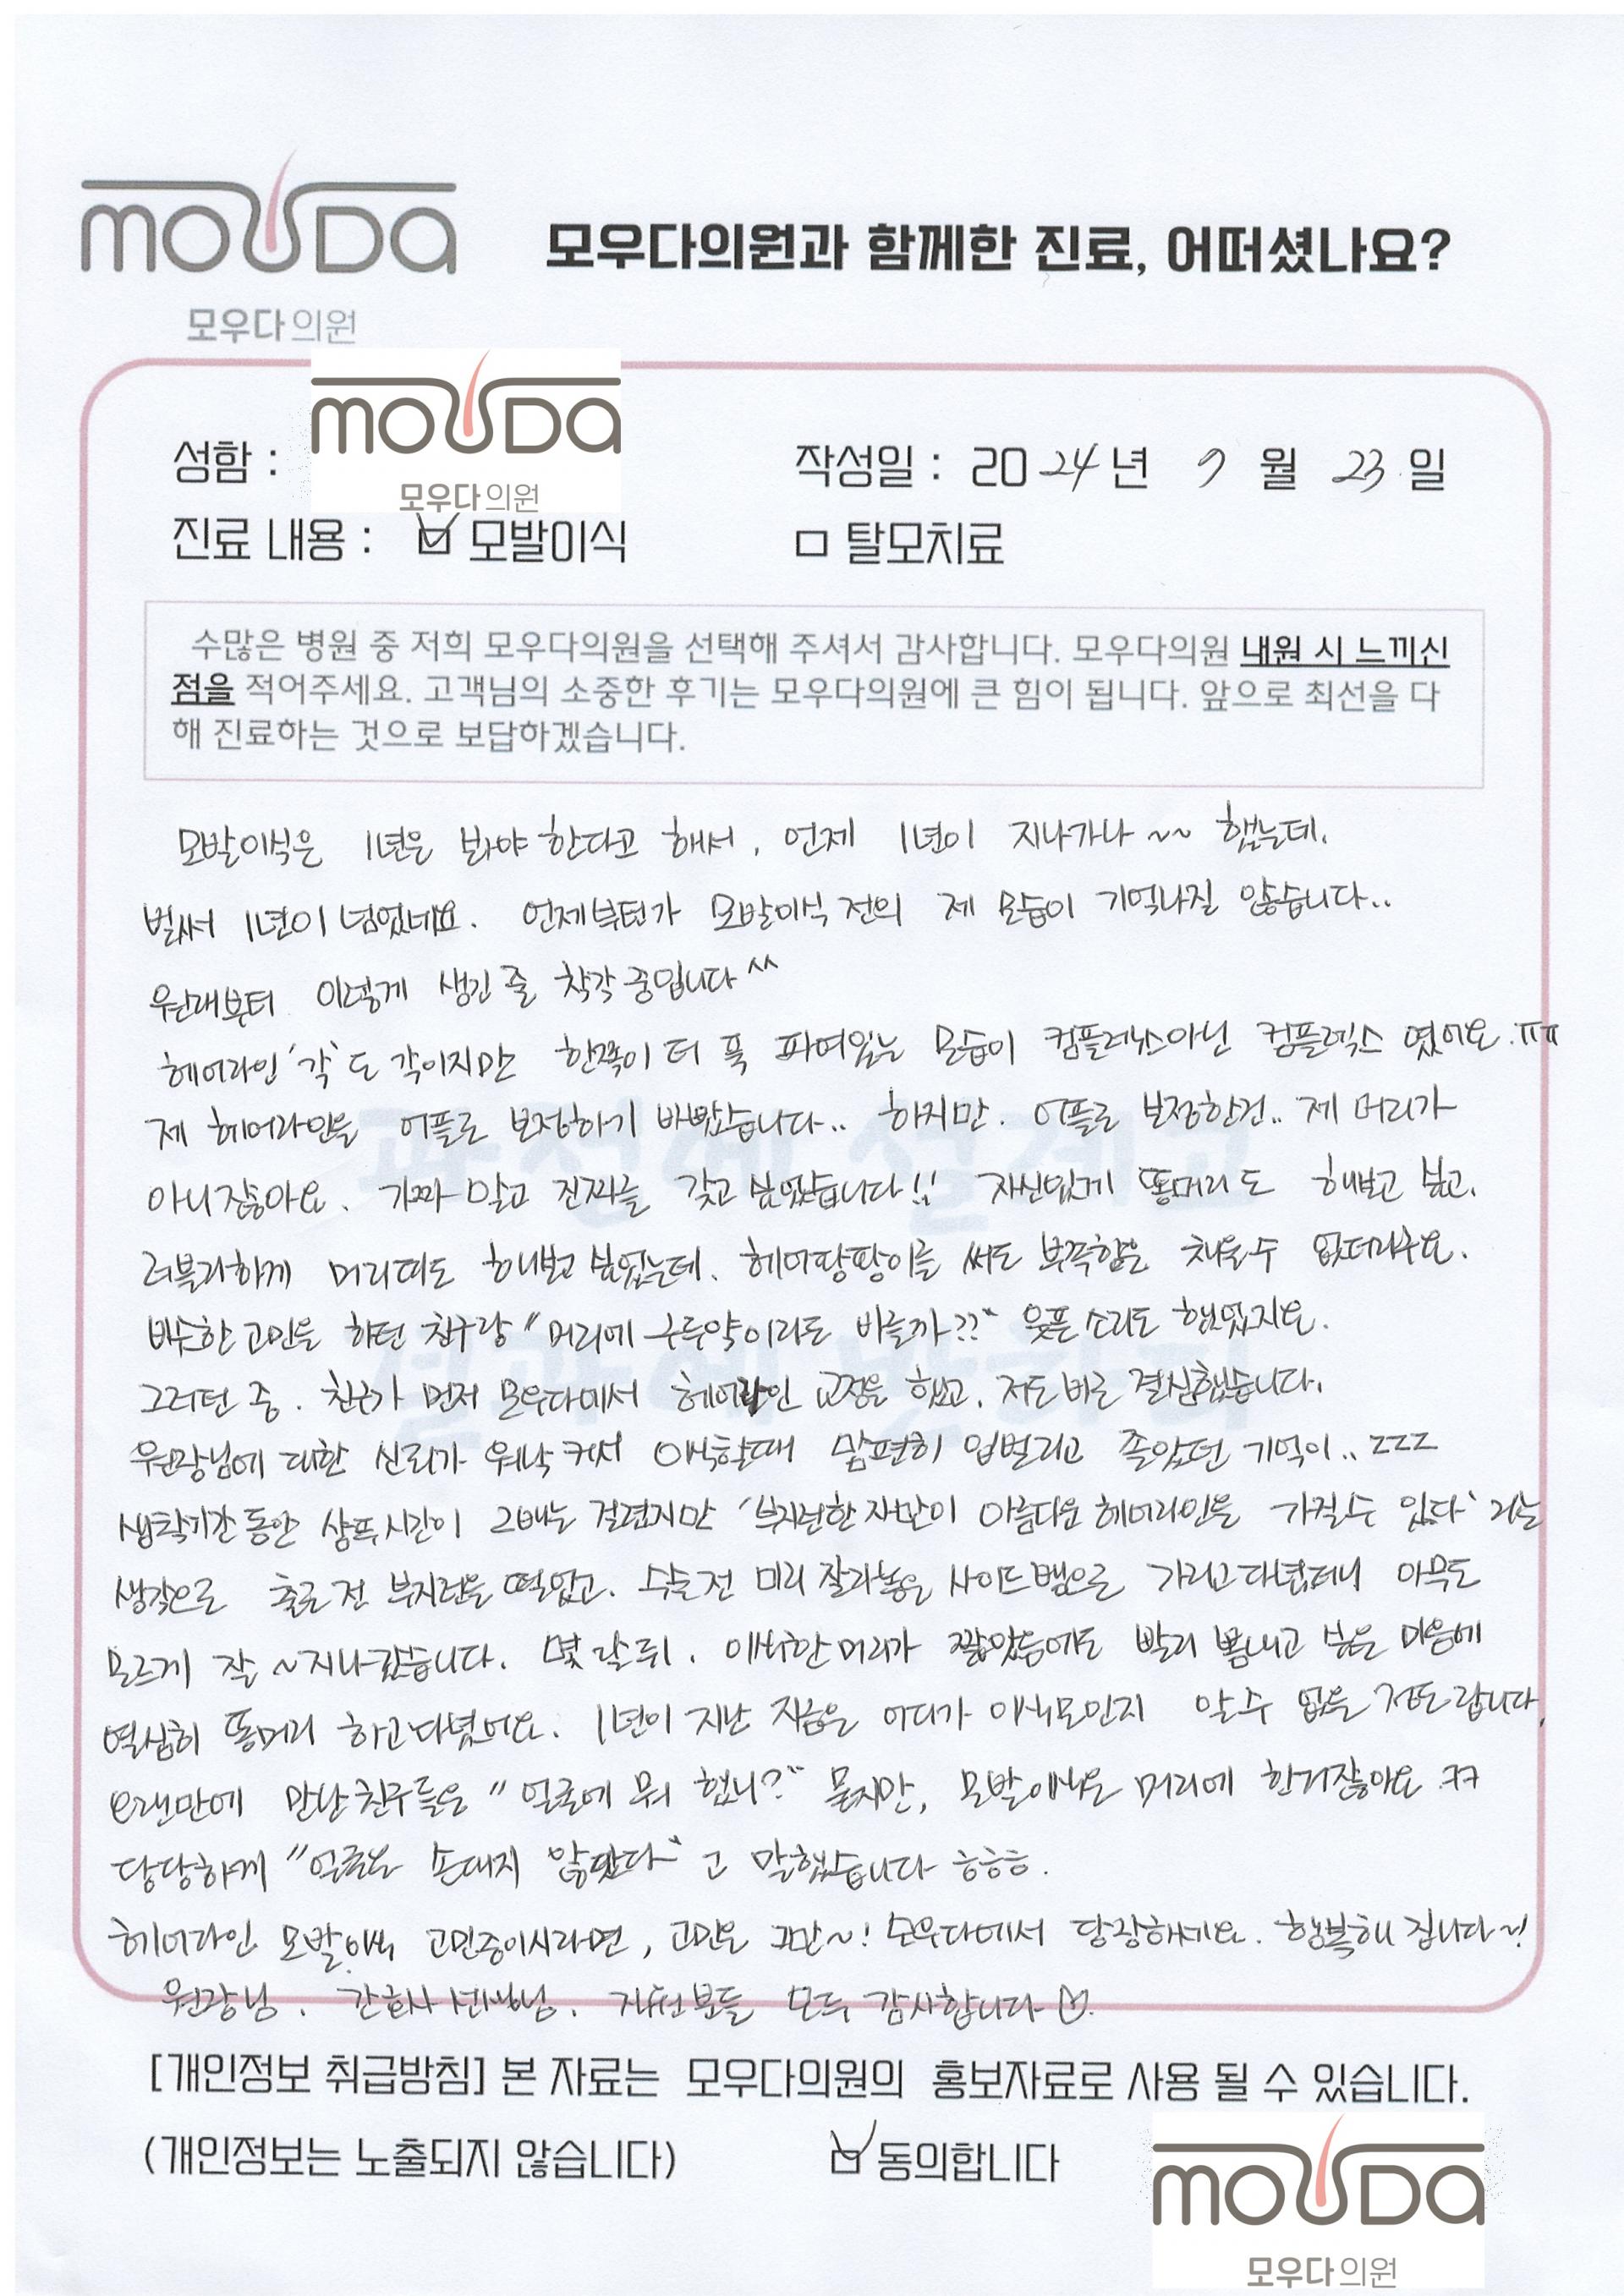 mouda
모우다의원과 함께한 진료, 어떠셨나요?
모우다의원
mouda
모우다의원
성함 :
작성일 : 2024년 9월 23일
진료 내용 : ☑ 모발이식 □ 탈모치료
수많은 병원 중 저희 모우다의원을 선택해 주셔서 감사합니다. 모우다의원 내원 시 느끼신
점을 적어주세요. 고객님의 소중한 후기는 모우다의원에 큰 힘이 됩니다. 앞으로 최선을 다
해 진료하는 것으로 보답하겠습니다.
모발이식은 1년은 봐야 한다고 해서, 언제 1년이 지나가나~~ 했는데,
벌써 1년이 넘었네요. 언제부턴가 모발이식 전의 제 모습이 기억나질 않습니다..
원래부터 이렇게 생긴 줄 착각 중입니다^^
헤어라인 '각'도 각이지만 한쪽이 더 푹 파여있는 모습이 컴플렉스아닌 컴플렉스 였어요.ㅠㅠ
제 헤어라인을 어플로 보정하기 바빴습니다.. 하지만. 어플로 보정한건.. 제 머리가
아니잖아요. 가짜 말고 진짜를 갖고 싶었습니다!! 자신있게 똥머리도 해보고 싶고,
러블리하게 머리띠도 해보고 싶었는데, 헤어팡팡이를 써도 부족함은 채울수 없더라구요.
비슷한 고민을 하던 친구랑 "머리에 구두약이라도 바를까??" 웃픈 소리도 했었지요.
그러던 중. 친구가 먼저 모우다에서 헤어라인 교정을 했고, 저도 바로 결심했습니다.
원장님에 대한 신뢰가 워낙 커서 이식할때 맘편히 입벌리고 졸았던 기억이.. zzz
생착기간 동안 샴푸시간이 2배는 걸렸지만 '부지런한 자만이 아름다운 헤어라인을 가질수 있다' 라는
생각으로 출근 전 부지런을 떨었고. 수술 전 미리 잘라놓은 사이드뱅으로 가리고 다녔더니 아무도
모르게 잘~지나갔습니다. 몇 달 뒤. 이식한 머리가 짧았음에도 빨리 뽐내고 싶은 마음에
열심히 똥머리 하고 다녔어요. 1년이 지난 지금은 어디가 이식모인지 알 수 없을 정도랍니다.
오랜만에 만난 친구들은 "얼굴에 뭐 했니?" 묻지만, 모발이식은 머리에 한거잖아요 ㅋㅋ
당당하게 "얼굴은 손대지 않았다"고 말했습니다 ㅎㅎㅎ.
헤어라인 모발이식 고민중이시라면, 고민은 그만~! 모우다에서 당장하세요. 행복해 집니다~!
원장님. 간호사 선생님. 직원분들 모두 감사합니다
[개인정보 취급방침] 본 자료는 모우다의원의 홍보자료로 사용 될 수 있습니다.
(개인정보는 노출되지 않습니다) ☑ 동의합니다
mouda
모우다의원